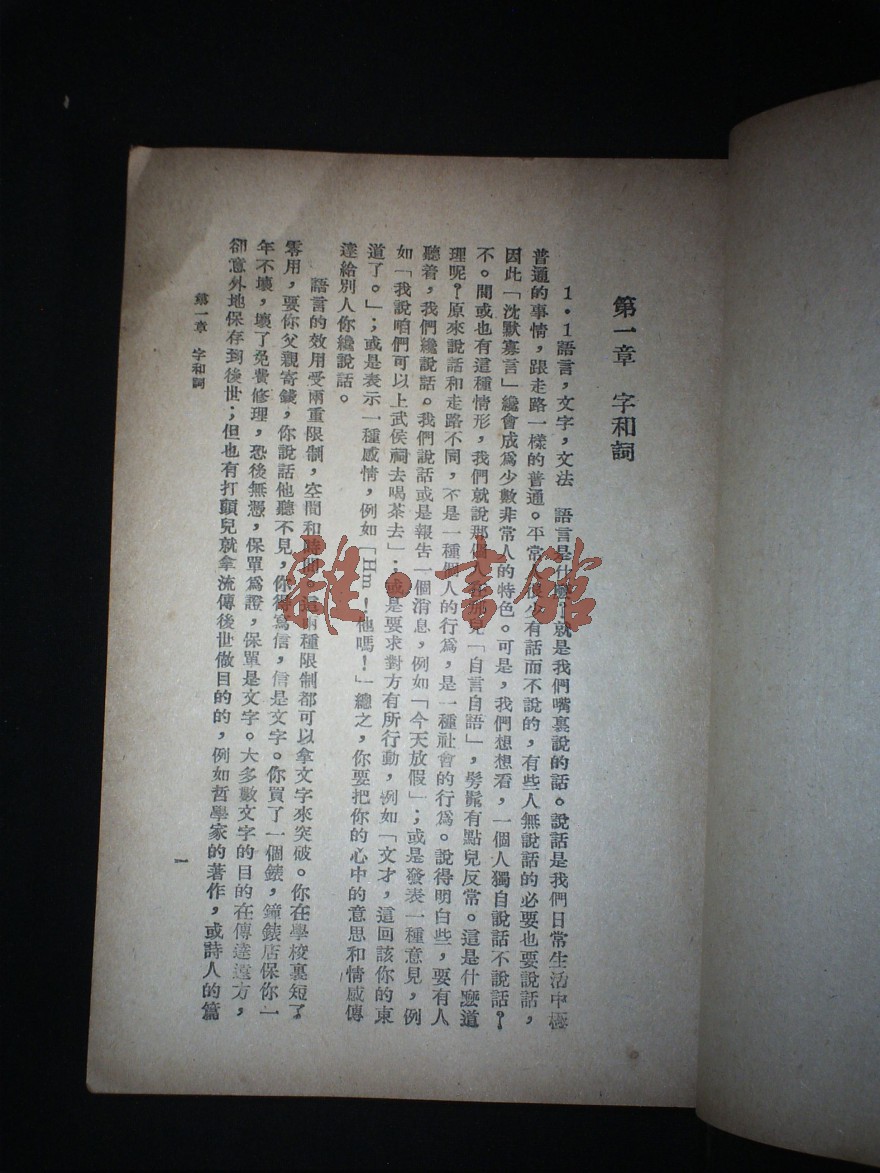 第一章　字和詞
1．1語言，文字，文法　語言是什麼？就是我們嘴裏說的話。說話是我們日常生活中極
普通的事情，跟走路一樣的普通。平常人很少有話而不說的，有些人無說話的必要也要說話，
因此「沈默寡言」纔會成爲少數非常人的特色。可是，我們想想看，一個人獨自說話不說話？
不。間或也有這種情形，我們就說那個人在那兒「自言自語」，髣髴有點兒反常。這是什麼道
理呢？原來說話和走路不同，不是一種個人的行爲，是一種社會的行爲。說得明白些，要有人
聽着，我們纔說話。我們說話或是報告一個消息，例如「今天放假」；或是發表一種意見，例
如「我說咱們可以上武侯祠去喝茶去」；或是要求對方有所行動，例如「文才，這回該你的東
道了。」；或是表示一種感情，例如「Hm！他嗎！」總之，你要把你的心中的意思和情感傳
達給別人你纔說話。
語言的效用受兩重限制，空間和時間。這兩種限制都可以拿文字來突破。你在學校裏短了
零用，要你父親寄錢，你說話他聽不見，你得寫信，信是文字。你買了一個錶，鐘錶店保你一
年不壞，壞了免費修理，恐後無憑，保單爲證，保單是文字。大多數文字的目的在傳達遠方，
卻意外地保存到後世；但也有打頭兒就拿流傳後世做目的的，例如哲學家的著作，或詩人的篇
第一章　字和詞
一
雜·書館